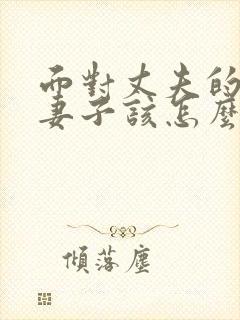 而對丈夫的
妻子該怎麼
傾落塵